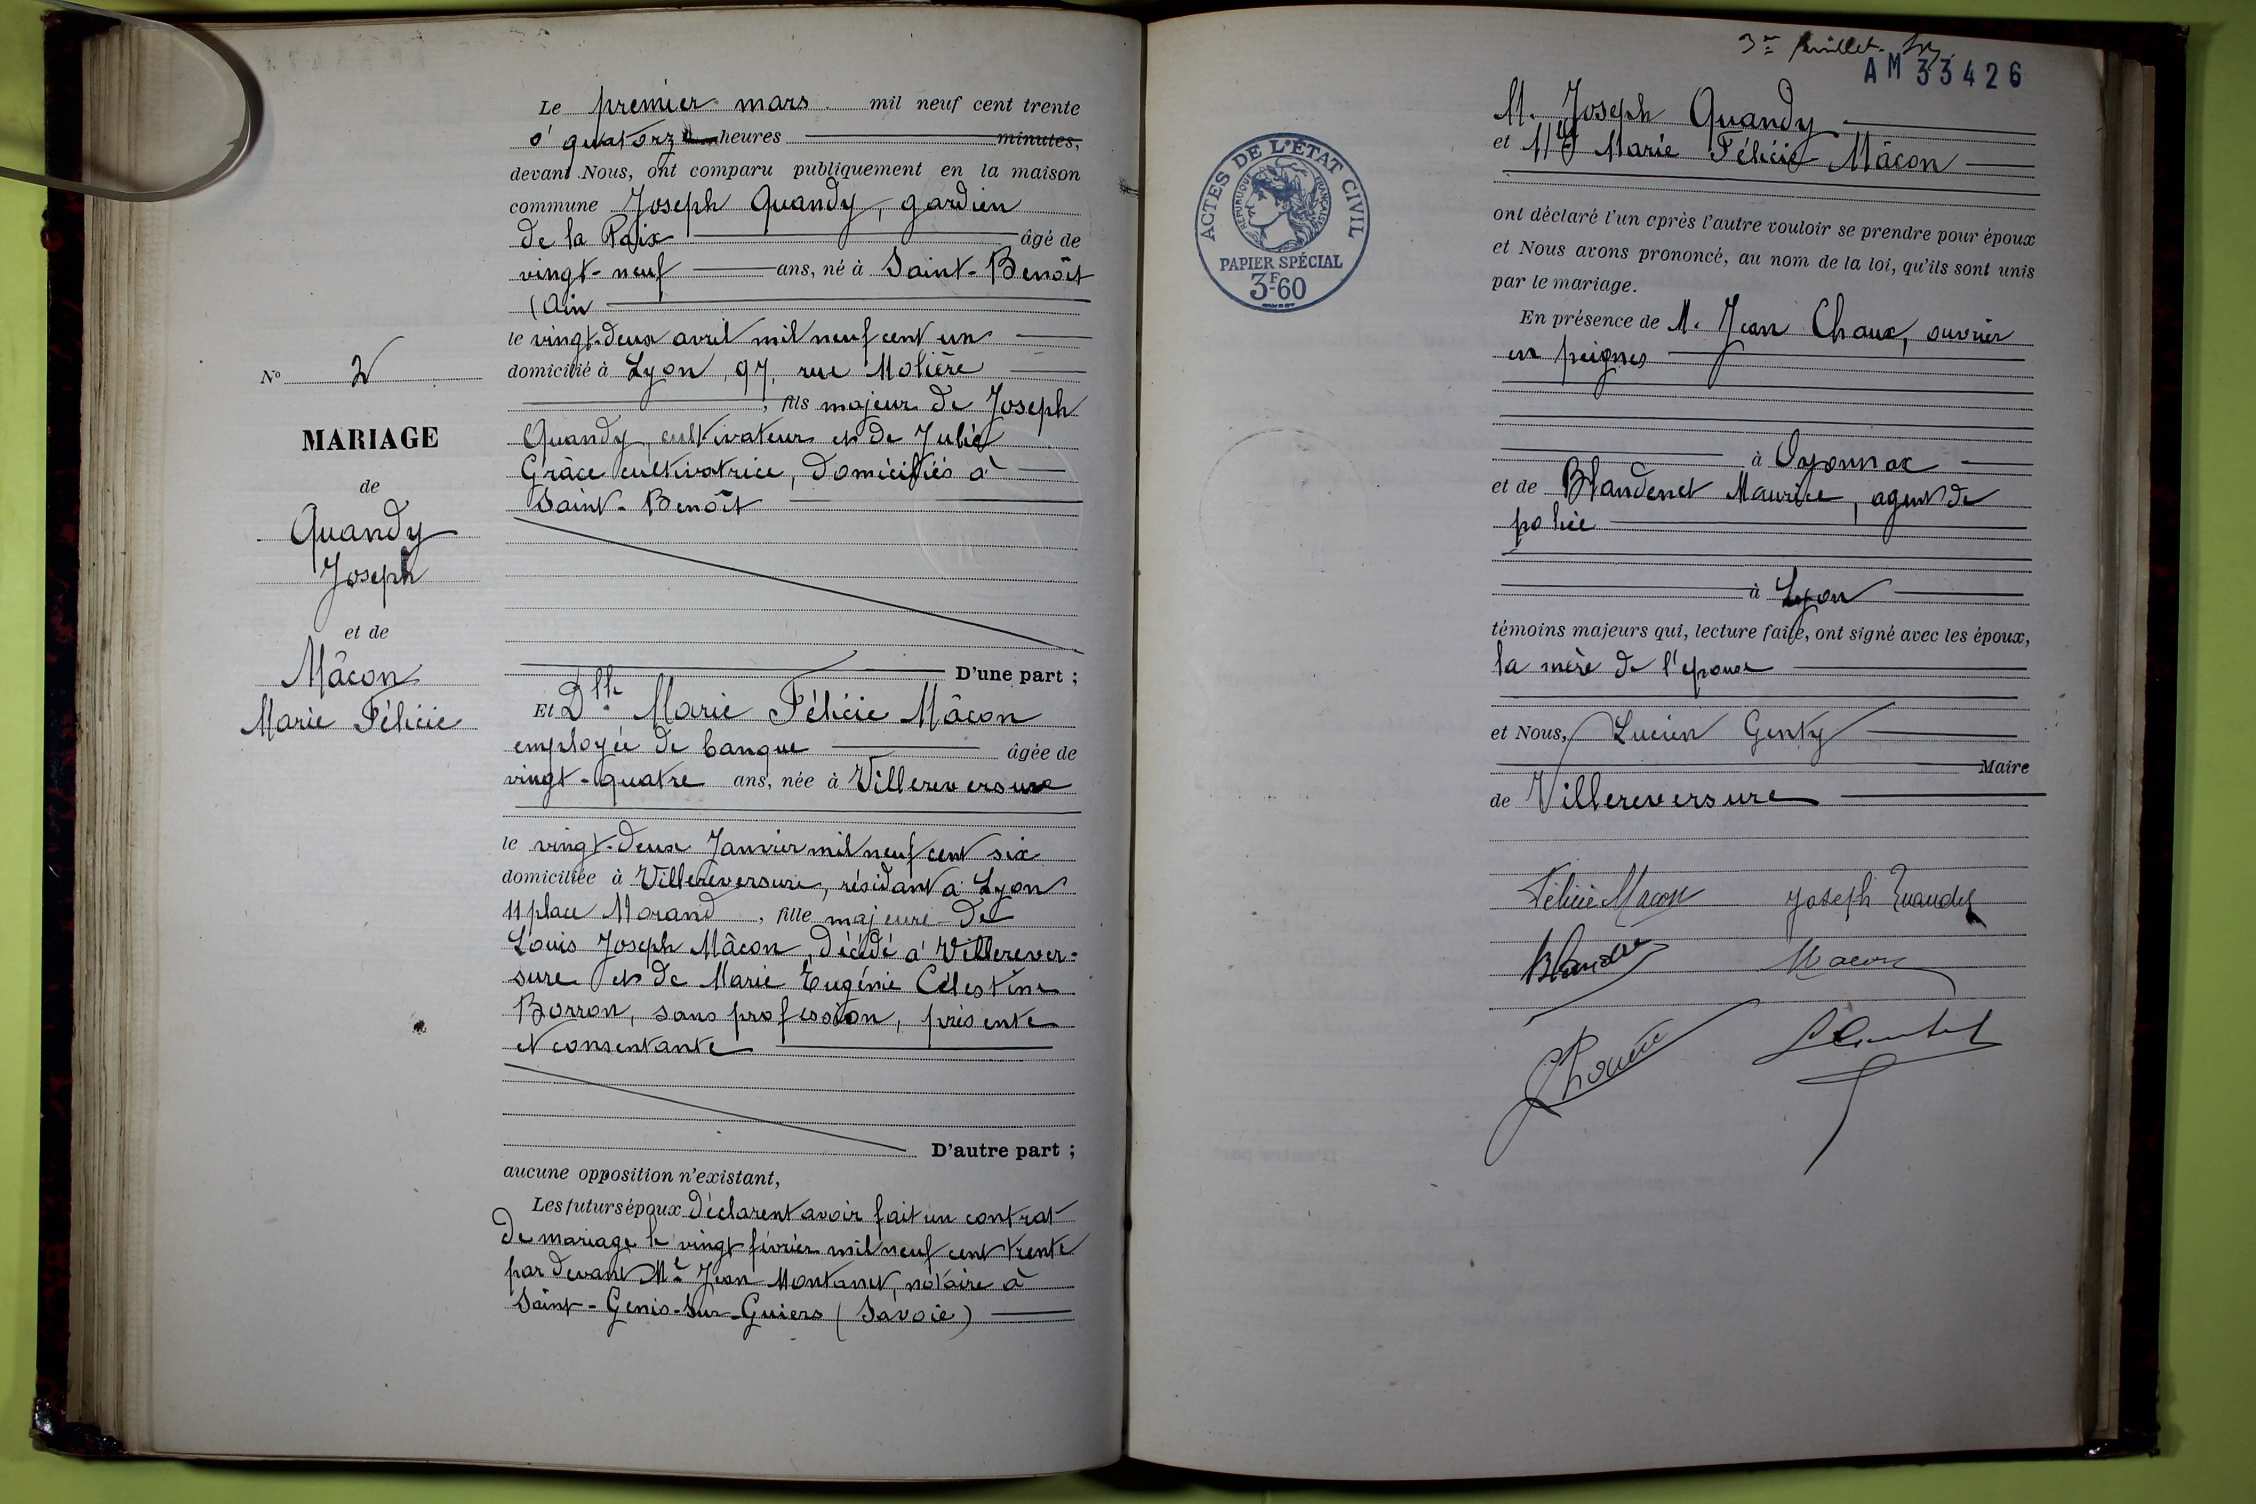 Le premier mars mil neuf cent trente
à quatorze heures minutes,
devant Nous, ont comparu publiquement en la maison
commune Joseph Quandy, gardien
de la Paix âgé de
vingt-neuf ans, né à Saint-Benoît
(Ain
le vingt-deux avril mil neuf cent un
domicilié à Lyon, 97, rue Molière
, fils majeur de Joseph
Quandy, cultivateur et de Julie
Grâce cultivatrice, domiciliés à
Saint-Benoît
D'une part ;
Et Dlle Marie Félicie Mâcon
employée de banque âgée de
vingt-quatre ans, née à Villereversure
le vingt-deux Janvier mil neuf cent six
domiciliée à Villereversure, résidant à Lyon
11 place Morand, fille majeure de
Louis Joseph Mâcon, décédé à Villerever-
sure et de Marie Eugénie Célestine
Borron, sans profession, présente
et consentante
D'autre part ;
aucune opposition n'existant,
Les futurs époux déclarent avoir fait un contrat
de mariage le vingt février mil neuf cent trente
par devant Me Jean Montanet, notaire à
Saint-Genis-sur-Guiers (Savoie)
No 2
MARIAGE
de
Quandy
Joseph
et de
Mâcon
Marie Félicie
3e feuillet
AM 33426
M. Joseph Quandy
et Mlle Marie Félicie Mâcon
ont déclaré l'un après l'autre vouloir se prendre pour époux
et Nous avons prononcé, au nom de la loi, qu'ils sont unis
par le mariage.
En présence de M. Jean Chaux, ouvrier
en peignes
à Oyonnax
et de Blandenet Maurice, agent de
police
à Lyon
témoins majeurs qui, lecture faite, ont signé avec les époux,
la mère de l'épouse
et Nous, Lucien Genty
Maire
de Villereversure
Félicie Macon Joseph Quandy
Macon
ACTES DE L'ÉTAT CIVIL
RÉPUBLIQUE FRANÇAISE
PAPIER SPÉCIAL
3F-60